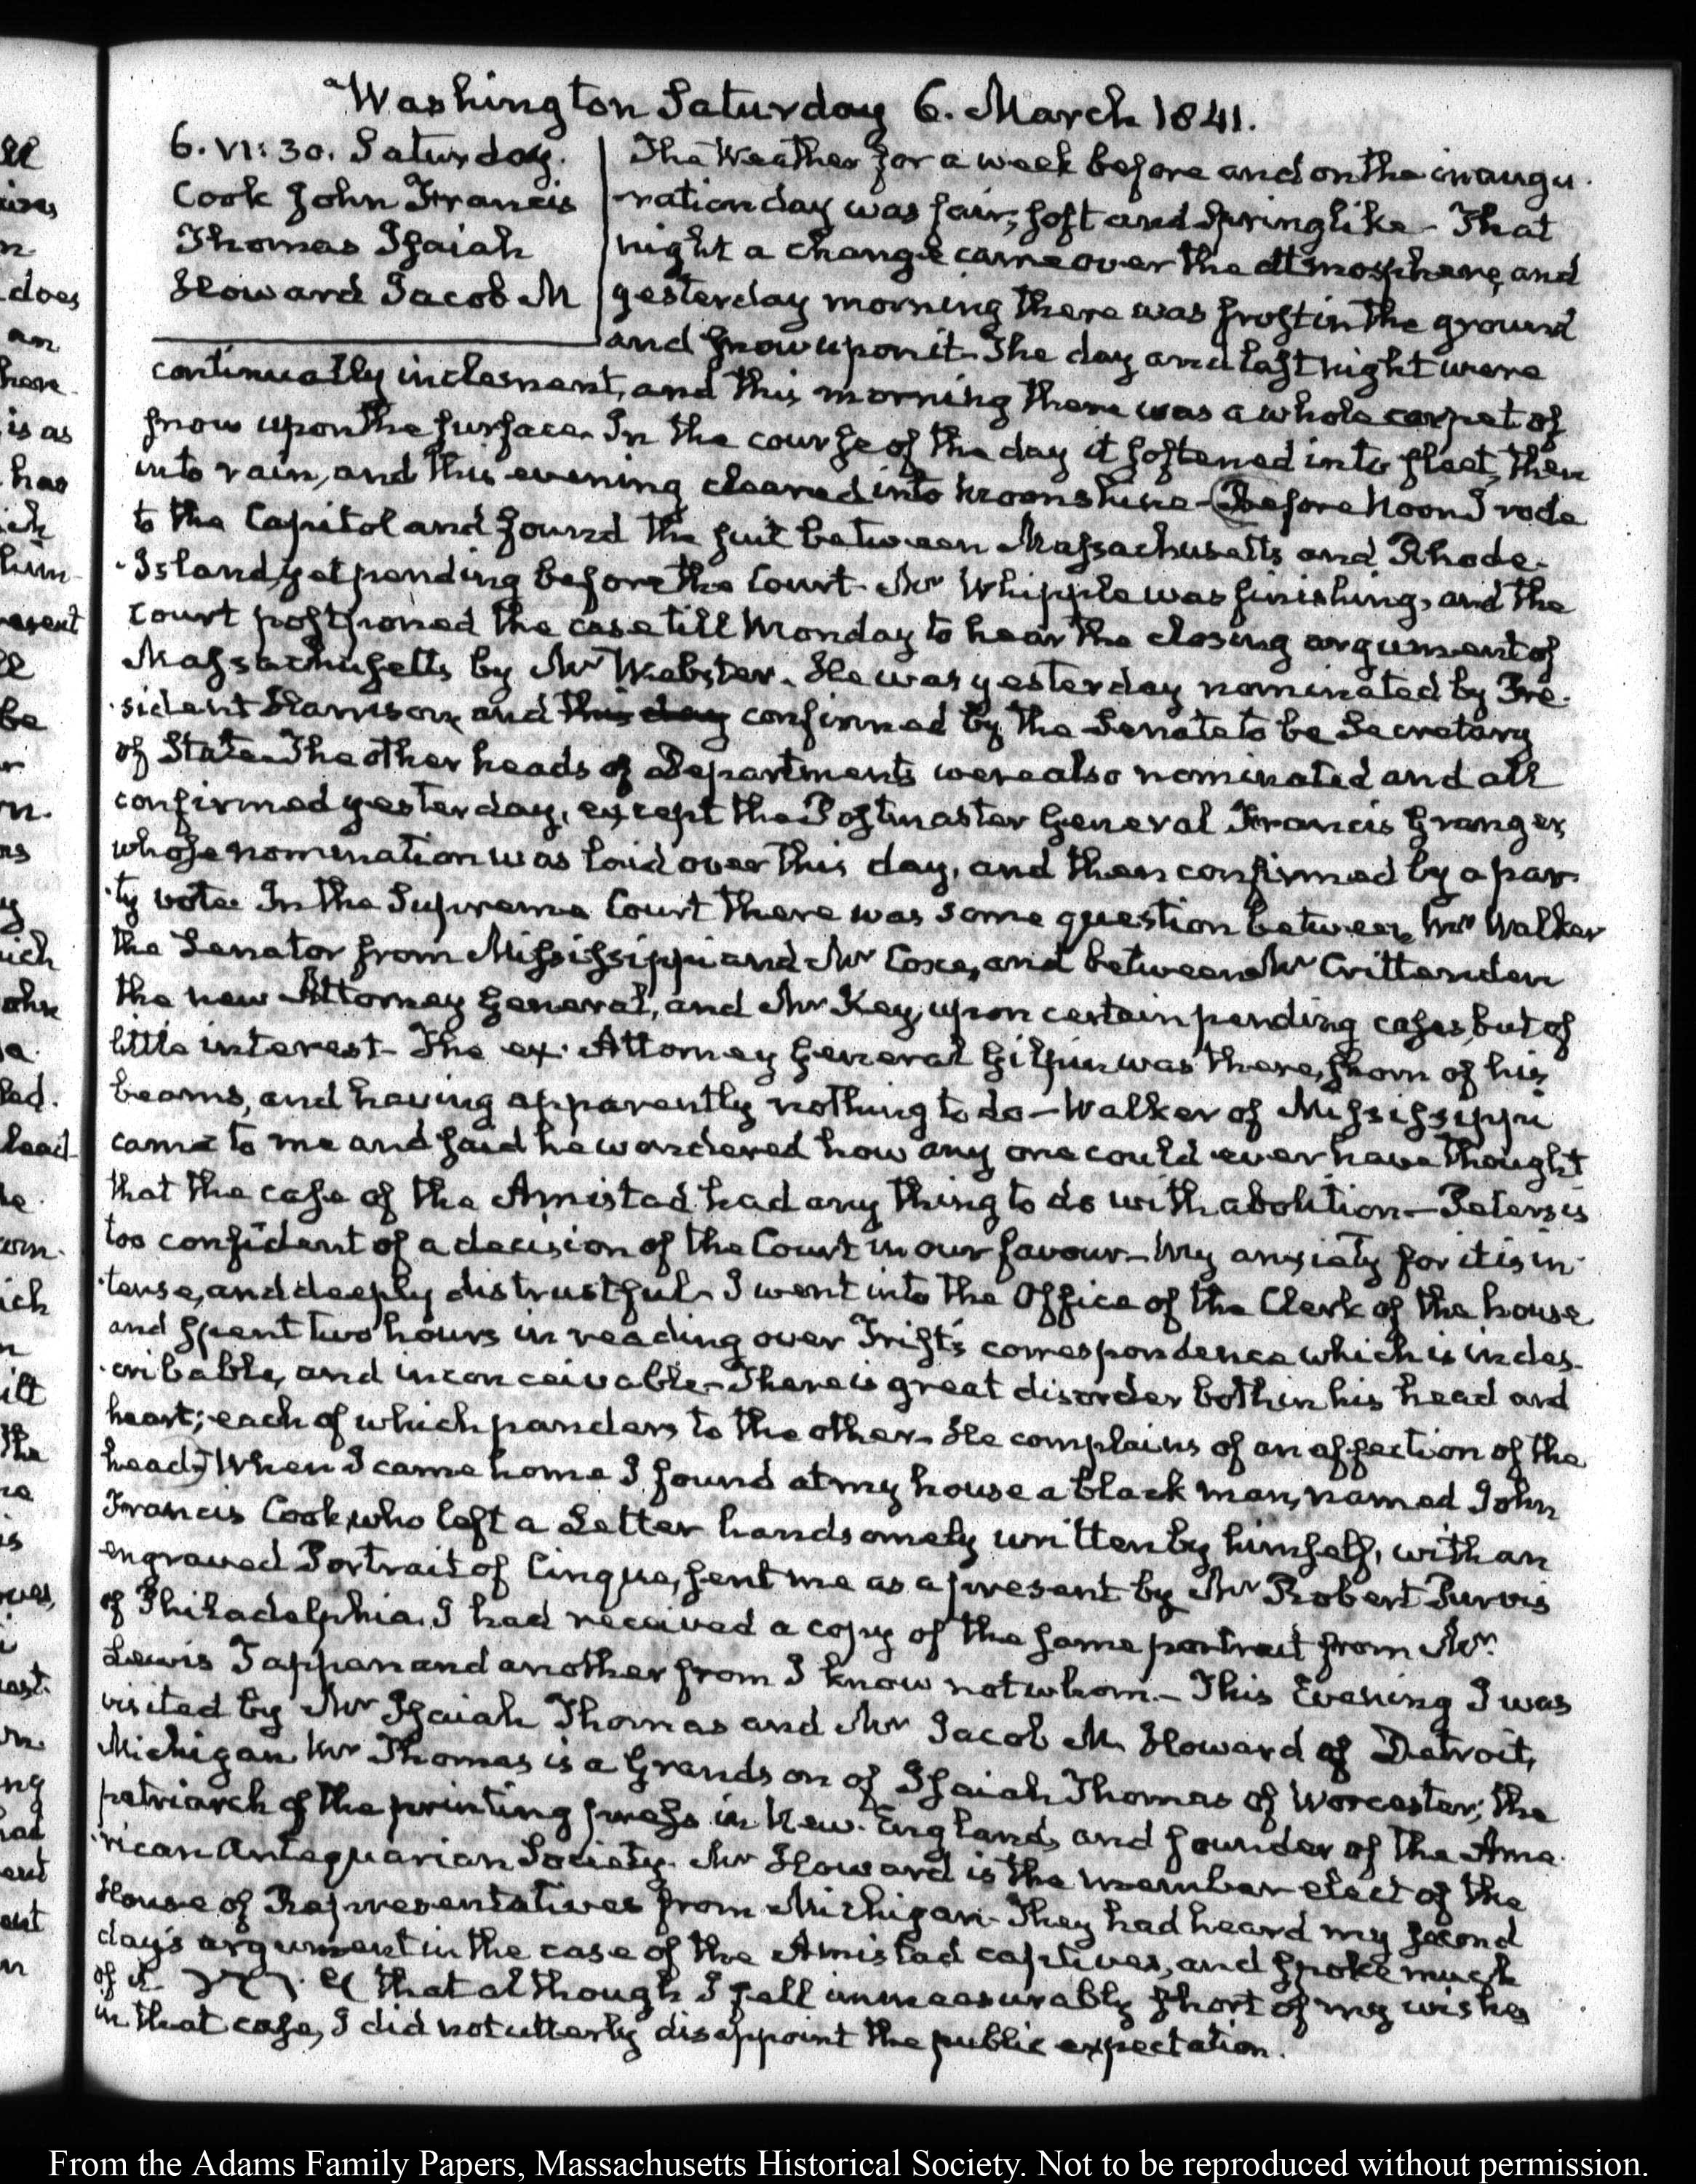 Washington Saturday 6. March 1841.
6. VI: 30. Saturday.
Cook John Francis
Thomas Isaiah
Howard Jacob M
The Weather for a week before and on the inaugu-
ration day was fair, soft and Springlike- That
night a change came over the atmosphere, and
yesterday morning there was frost in the ground
and snow upon it. The day and last night were
continually inclement, and this morning there was a whole carpet of
snow upon the surface. In the course of the day it softened into sleet, then
into rain, and this evening cleared into moonshine- Before Noon I rode
to the Capitol and found the suit between Massachusetts and Rhode-
Island, yet pending before the Court. Mr Whipple was finishing, and the
Court postponed the case till Monday to hear the closing argument of
Massachusetts by Mr Webster. He was yesterday nominated by Pre-
sident Harrison, and this day confirmed by the Senate to be Secretary
of State. The other heads of Departments were also nominated and all
confirmed yesterday, except the Postmaster General Francis Granger,
whose nomination was laid over this day, and then confirmed by a par-
ty vote. In the Supreme Court there was some question between Mr Walker
the Senator from Mississippi and Mr Coxe, and between Mr Crittenden
the new Attorney General, and Mr Key, upon certain pending cases, but of
little interest- The ex-Attorney General Gilpin was there, shorn of his
beams, and having apparently nothing to do- Walker of Mississippi
came to me and said he wondered how any one could ever have thought
that the case of the Amistad had any thing to do with abolition- Peters is
too confident of a decision of the Court in our favour- My anxiety for it is in-
tense, and deeply distrustful- I went into the Office of the Clerk of the house
and spent two hours in reading over Trist's correspondence which is indes-
cribable, and inconceivable- There is great disorder both in his head and
heart; each of which panders to the other- He complains of an affection of the
head- When I came home I found at my house a black man, named John
Francis Cook, who left a Letter handsomely written by himself, with an
engraved Portrait of Cinque, sent me as a present by Mr Robert Purvis
of Philadelphia. I had received a copy of the same portrait from Mr
Lewis Tappan and another from I know not whom.- This Evening I was
visited by Mr Isaiah Thomas and Mr Jacob M. Howard of Detroit,
Michigan. Mr Thomas is a Grandson of Isaiah Thomas of Worcester; the
patriarch of the printing press in New-England, and founder of the Ame-
rican Antiquarian Society. Mr Howard is the member elect of the
House of Representatives from Michigan- They had heard my second
day's argument in the case of the Amistad captives, and spoke much
of it. that although I fell immeasurably short of my wishes
in that case, I did not utterly disappoint the public expectation.
From the Adams Family Papers, Massachusetts Historical Society. Not to be reproduced without permission.